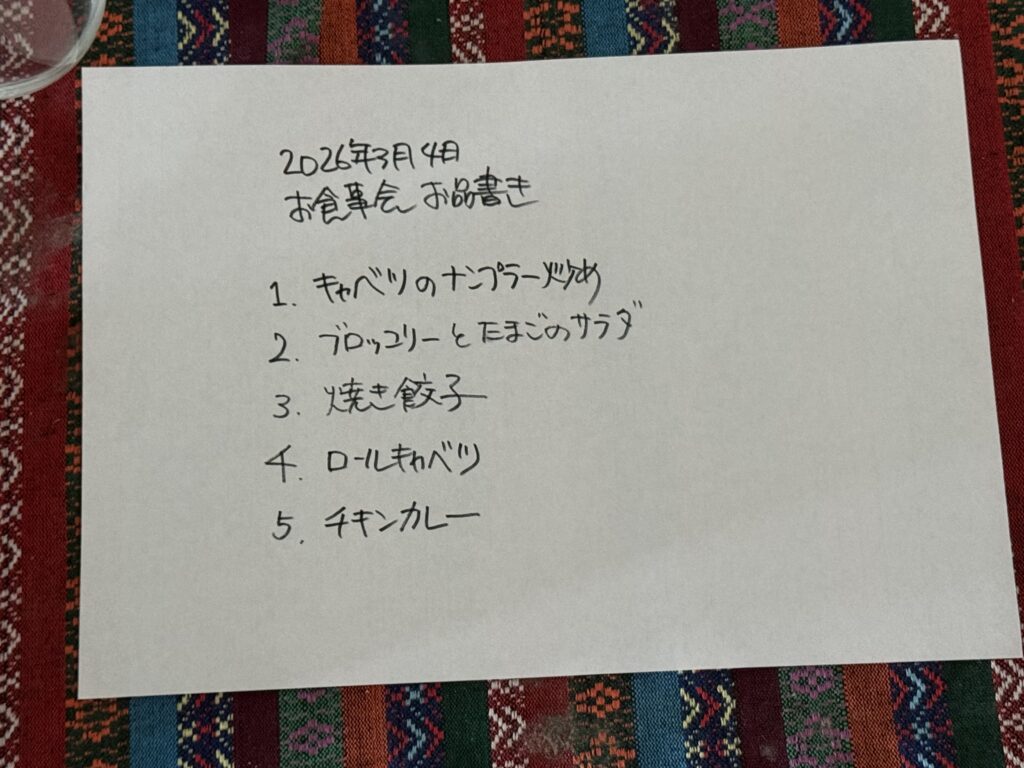 2026年3月4日
お食事会 お品書き
1. キャベツのナンプラー炒め
2. ブロッコリーとたまごのサラダ
3. 焼き餃子
4. ロールキャベツ
5. チキンカレー